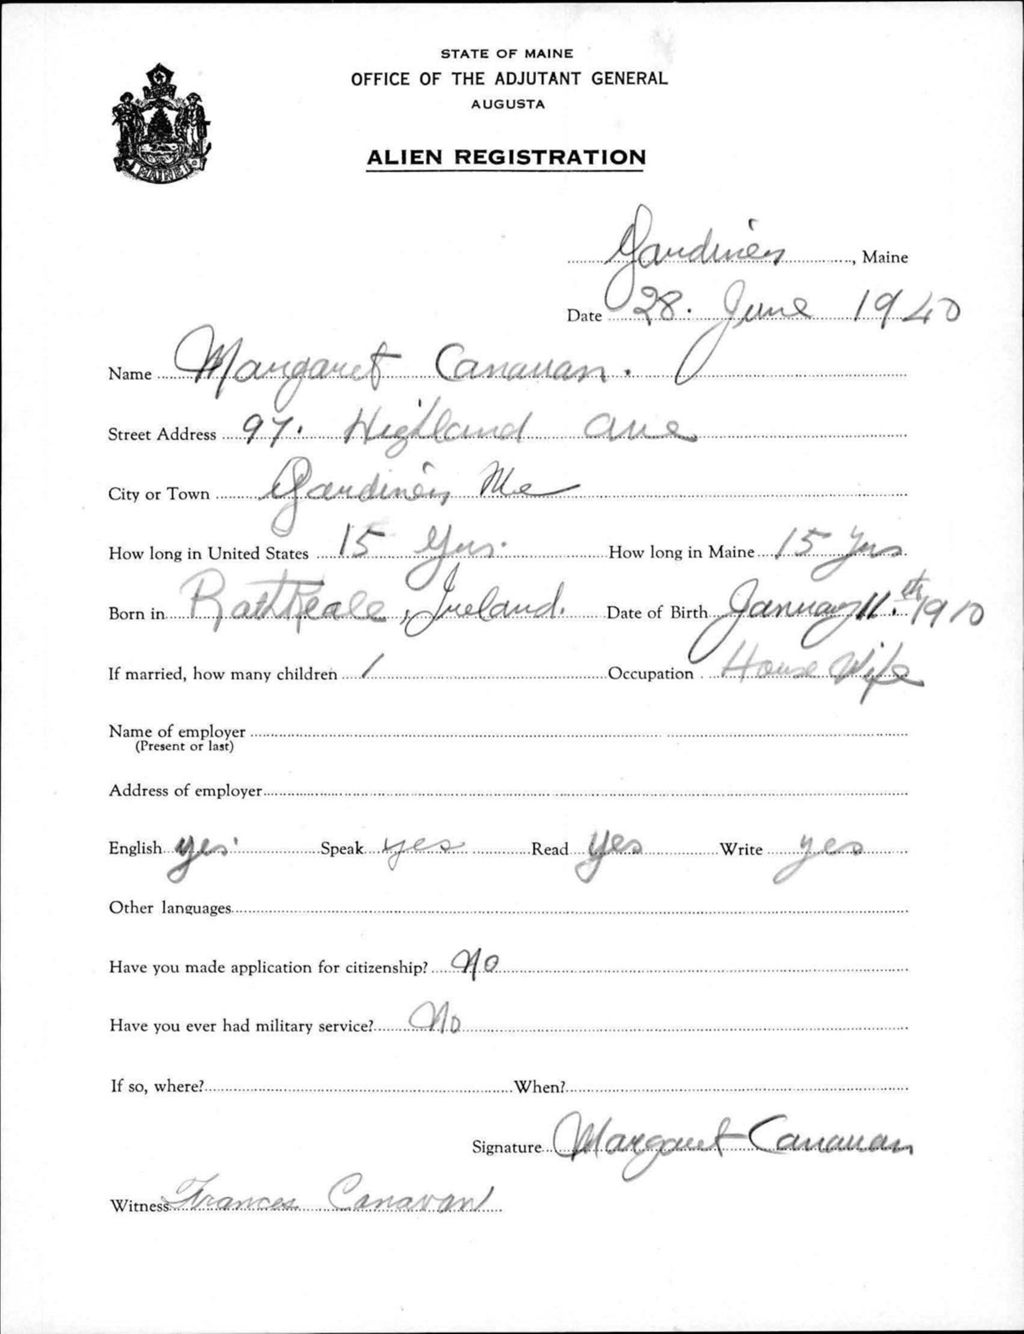 STATE OF MAINE
OFFICE OF THE ADJUTANT GENERAL
AUGUSTA
ALIEN REGISTRATION
MAINE
Gardiner, Maine
Date 28. June 1940
Name Margaret Canavan.
Street Address 97. Highland Ave
City or Town Gardiner, Me
How long in United States 15 Yrs. How long in Maine 15 Yrs
Born in RathKeale, Ireland. Date of Birth January 11.th 1910
If married, how many children 1 Occupation House Wife
Name of employer
(Present or last)
Address of employer
English yes Speak yes Read yes Write yes
Other languages
Have you made application for citizenship? No
Have you ever had military service? No
If so, where? When?
Signature Margaret Canavan
Witness Frances Canavan